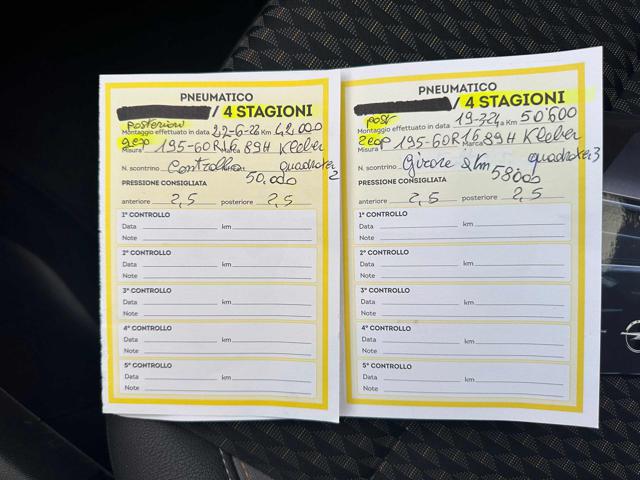 PNEUMATICO
/ 4 STAGIONI
posteriori
Montaggio effettuato in data 27-6-22 Km 42.000
Misura 195-60R16 89H Marca Kleber
quadrater 2
N. scontrino Controllo 50.000
PRESSIONE CONSIGLIATA
anteriore 2,5 posteriore 2,5
1° CONTROLLO
Data km
Note
2° CONTROLLO
Data km
Note
3° CONTROLLO
Data km
Note
4° CONTROLLO
Data km
Note
5° CONTROLLO
Data km
Note
PNEUMATICO
/ 4 STAGIONI
post
Montaggio effettuato in data 19-7-24 Km 50'600
Misura 195-60R16 89H Marca Kleber
quadrater 3
N. scontrino Girare Km 58000
PRESSIONE CONSIGLIATA
anteriore 2,5 posteriore 2,5
1° CONTROLLO
Data km
Note
2° CONTROLLO
Data km
Note
3° CONTROLLO
Data km
Note
4° CONTROLLO
Data km
Note
5° CONTROLLO
Data km
Note